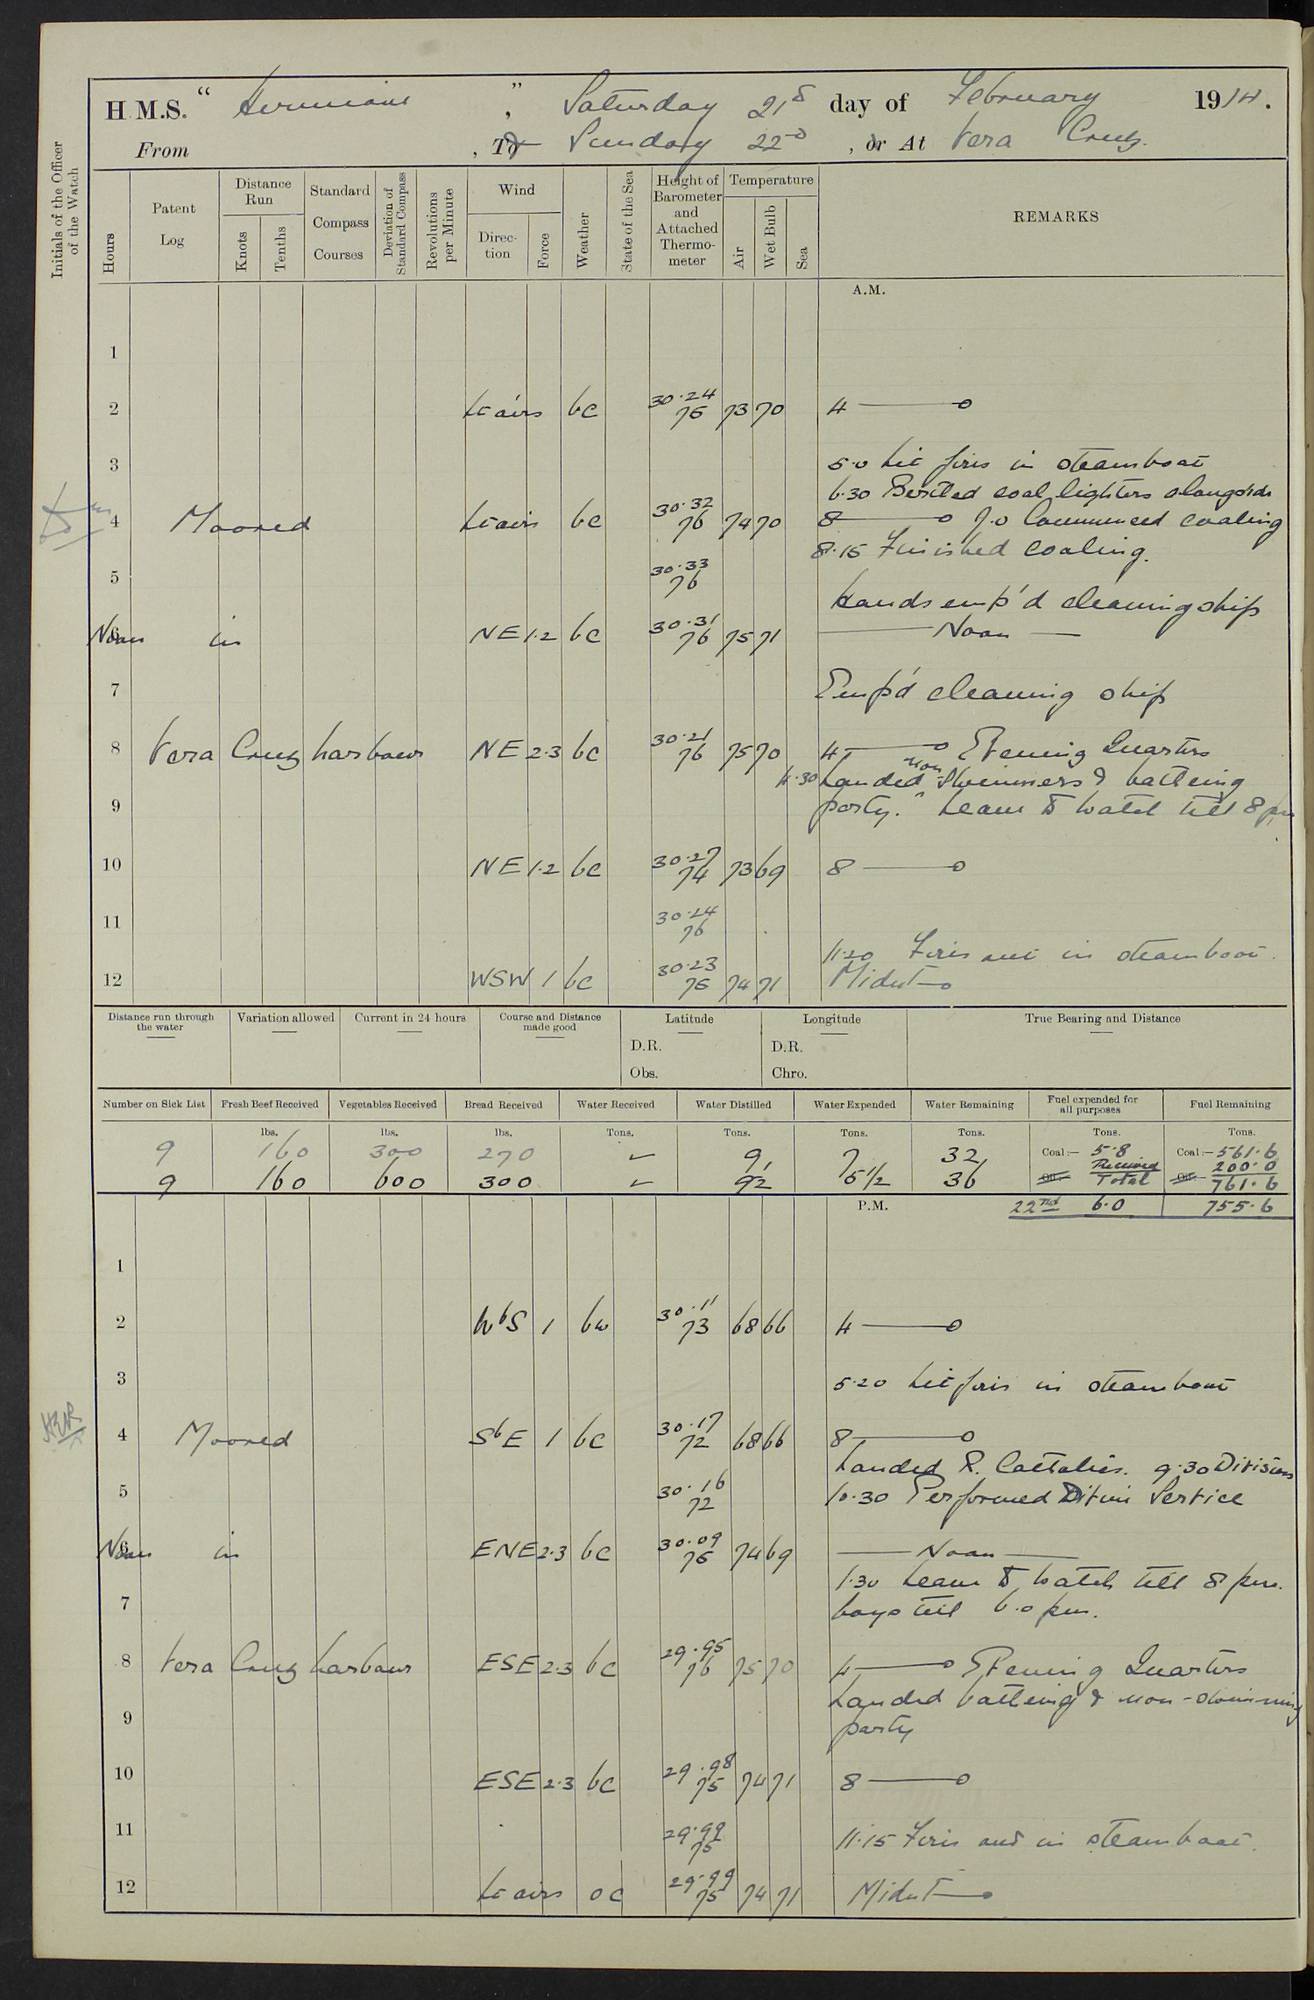 H.M.S. " Hermione ", Saturday 21st day of February 1914.
From , To Sunday 22nd , or At Vera Cruz.
Initials of the Officer of the Watch
Hours
Patent Log
Distance Run
Knots
Tenths
Standard Compass Courses
Deviation of Standard Compass
Revolutions per Minute
Wind
Direction
Force
Weather
State of the Sea
Height of Barometer and Attached Thermometer
Temperature
Air
Wet Bulb
Sea
REMARKS
A.M.
1
2 Lt airs bc 30.24 75 73 70 4
3 5.0 Lit fires in steamboat
6.30 Berthed coal lighters alongside
4 Moored Lt airs bc 30.32 76 74 70 8 7.0 Commenced coaling
8.15 Finished coaling.
5 30.33 76
Hands emp'd cleaning ship
Noon in NE 1.2 bc 30.31 76 75 71 Noon
7 Emp'd cleaning ship
8 Vera Cruz harbour NE 2.3 bc 30.21 76 75 70 4 Evening Quarters
4.30 Landed non-swimmers & bathing
9 party. Leave to watch till 8 pm
10 NE 1.2 bc 30.27 74 73 69 8
11 30.24 76
11.20 Fires out in steamboat.
12 WSW 1 bc 30.23 75 74 71 Midnt
Distance run through the water
Variation allowed
Current in 24 hours
Course and Distance made good
Latitude
D.R.
Obs.
Longitude
D.R.
Chro.
True Bearing and Distance
Number on Sick List Fresh Beef Received Vegetables Received Bread Received Water Received Water Distilled Water Expended Water Remaining Fuel expended for all purposes Fuel Remaining
lbs. lbs. lbs. Tons. Tons. Tons. Tons. Tons. Tons.
9 160 300 270 - 9 7 32 Coal:- 5.8 Coal:- 561.6
Received 200.0
9 160 600 300 - 9½ 5½ 36 Oil:- Total Oil:- 761.6
P.M. 22nd 6.0 755.6
1
2 WbS 1 bw 30.11 73 68 66 4
3 5.20 Lit fires in steamboat
4 Moored SbE 1 bc 30.17 72 68 66 8
Landed R. Catholics. 9.30 Divisions
5 30.16 72 10.30 Performed Divine Service
Noon in ENE 2.3 bc 30.09 75 74 69 Noon
1.30 Leave to watch till 8 pm.
7 boys till 6.0 pm.
8 Vera Cruz harbour ESE 2.3 bc 29.95 76 75 70 4 Evening Quarters
Landed bathing & non-swimming
9 party
10 ESE 2.3 bc 29.98 75 74 71 8
11 29.99 75 11.15 Fires out in steamboat.
12 Lt airs oc 29.99 75 74 71 Midnt